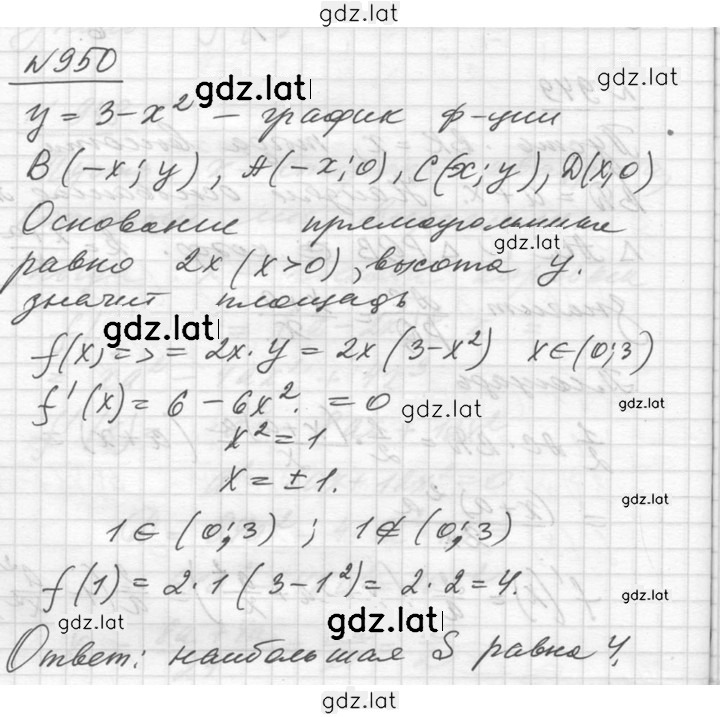 gdz.lat
N950
gdz.lat
gdz.lat
y = 3 - x² - график ф-ции
B(-x; y), A(-x; 0), C(x; y), D(x, 0)
Основание прямоугольника
gdz.lat
равно 2x (x>0), высота y.
значит площадь
gdz.lat
f(x) = > = 2x · y = 2x (3 - x²) x ∈ (0; 3)
f'(x) = 6 - 6x². = 0
gdz.lat
gdz.lat
x² = 1
x = ± 1.
gdz.lat
1 ∈ (0; 3) ; 1 ∉ (0; 3)
f(1) = 2 · 1 (3 - 1²) = 2 · 2 = 4.
gdz.lat
gdz.lat
gdz.lat
Ответ: наибольшая S равна 4.
gdz.lat